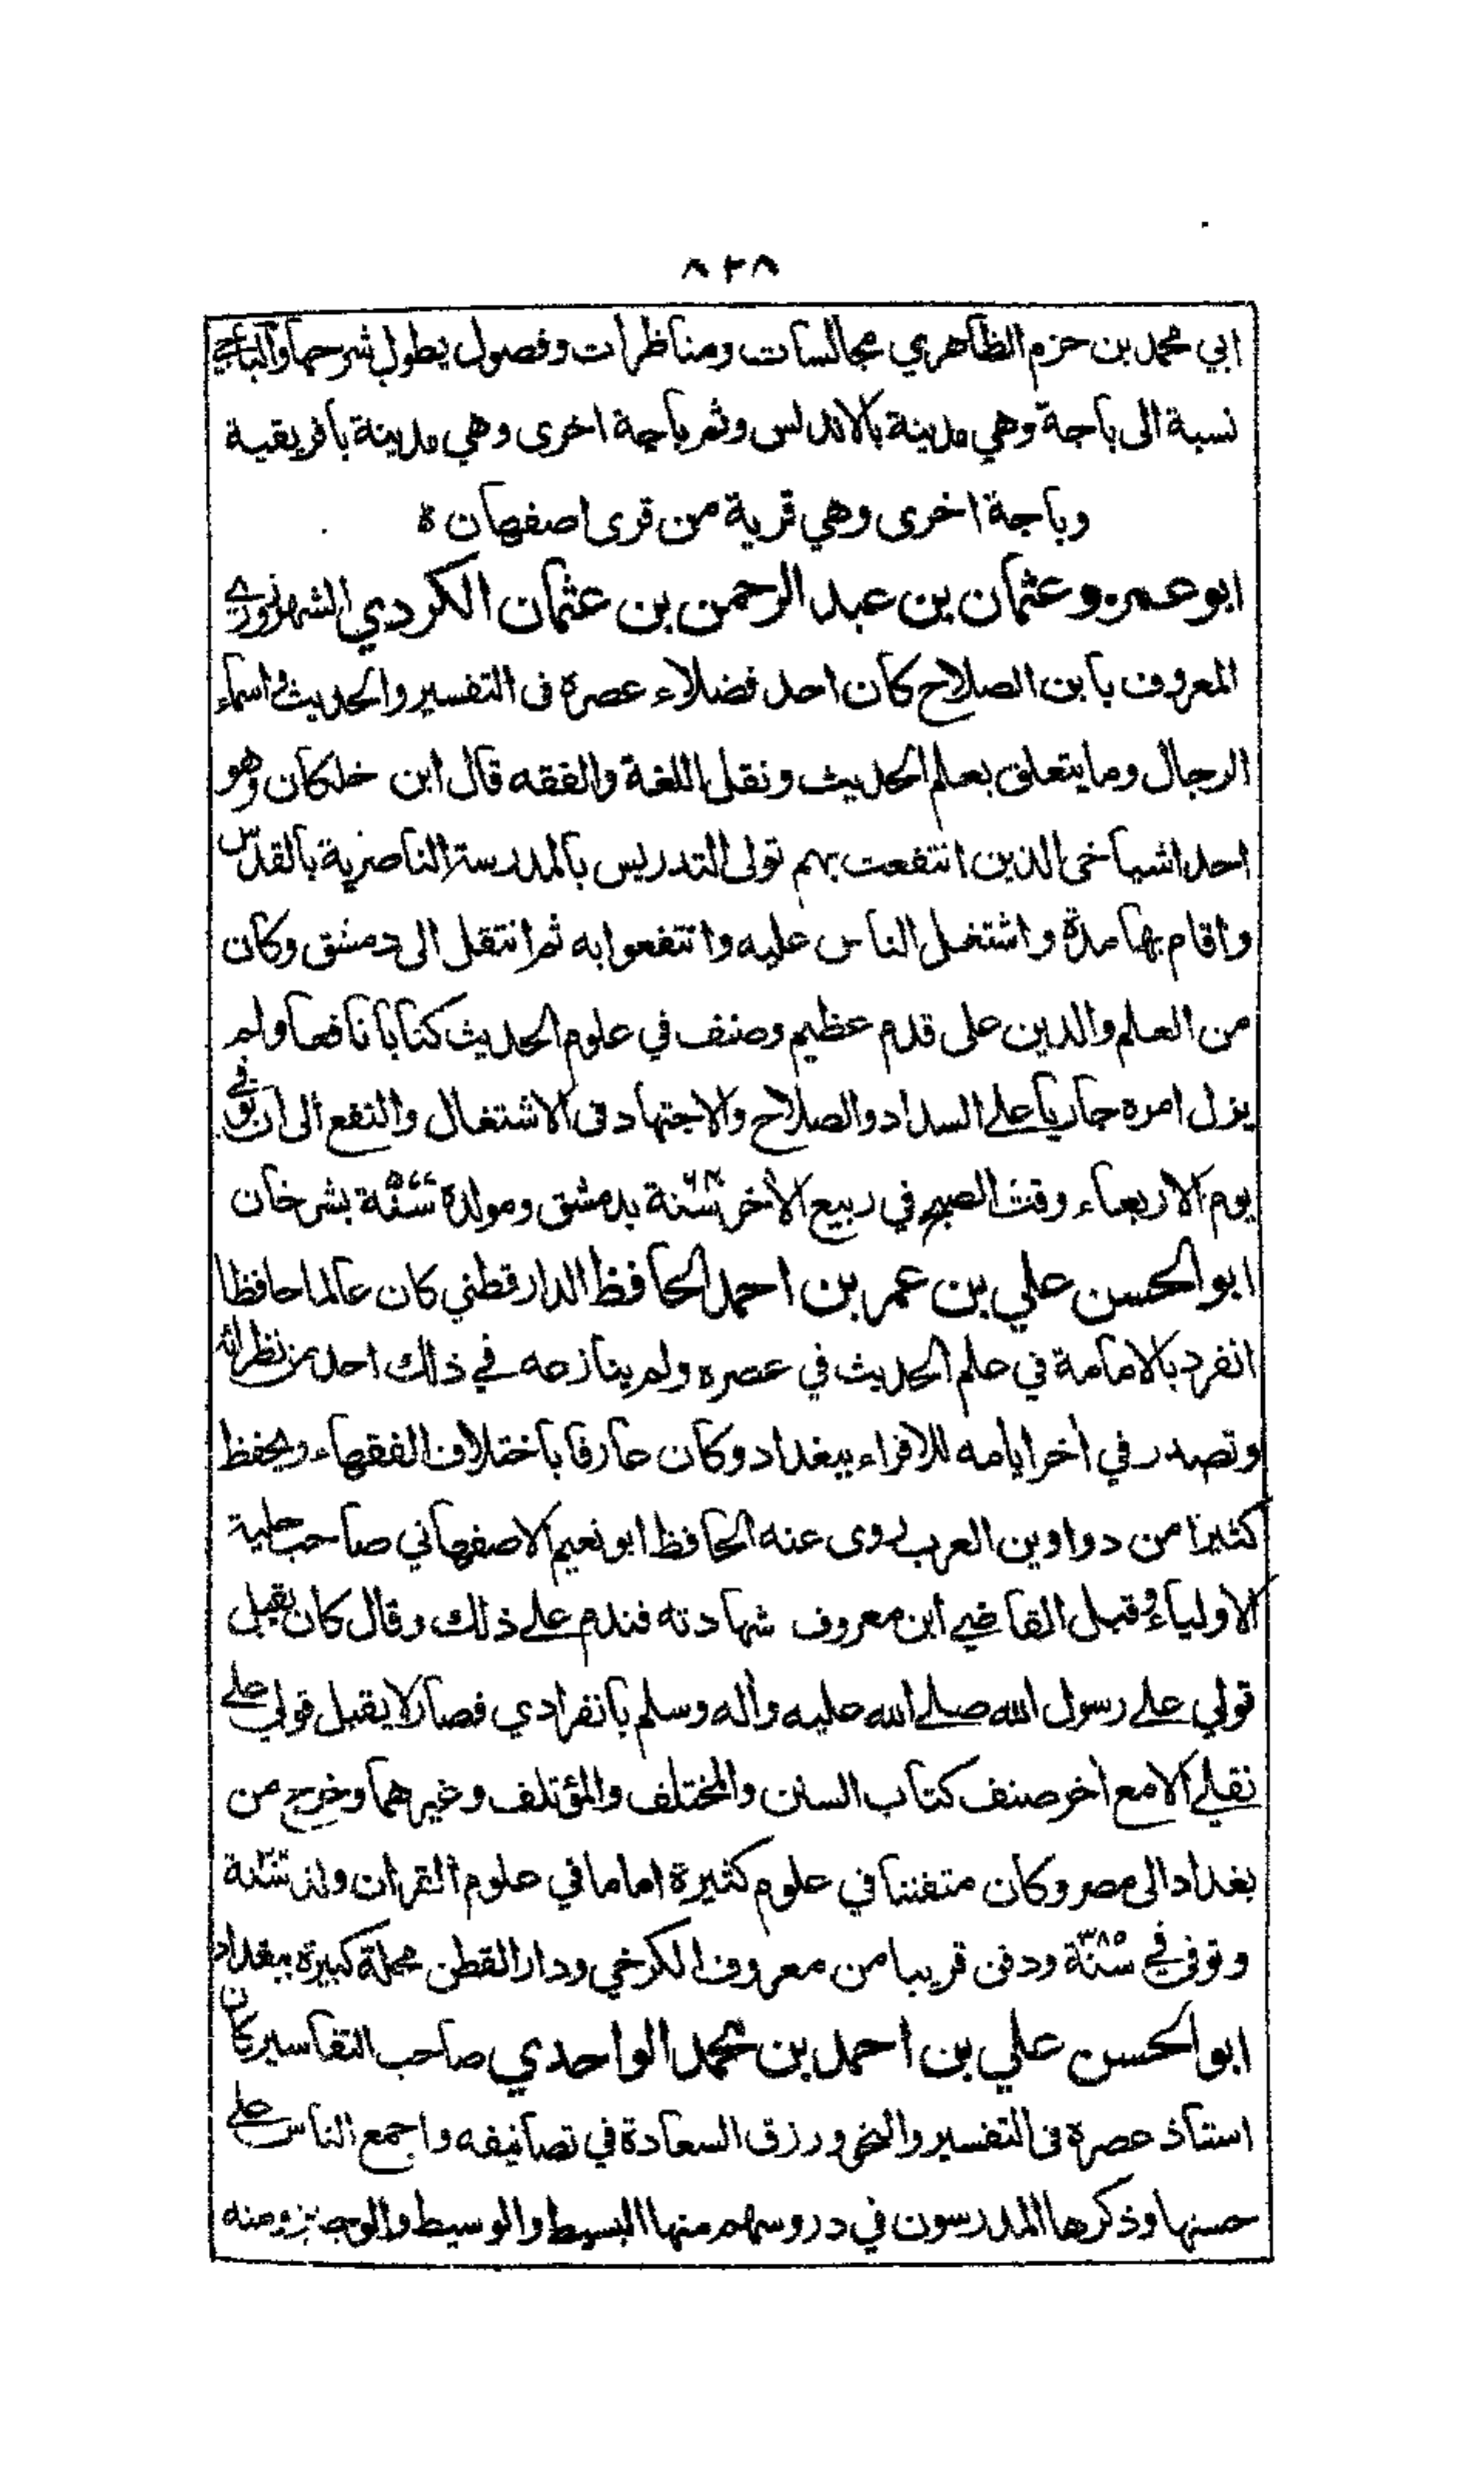 ٨٢٨
ابي محمد بن حزم الظاهري مجالسات ومناظرات وفصول يطول شرحها والباجي
نسبة الى باجة وهي مدينة بالاندلس وثم باجة اخرى وهي مدينة بافريقية
وباجة اخرى وهي قرية من قرى اصفهان ة
ابو عمرو عثمان بن عبد الرحمن بن عثمان الكردي الشهرزوري
المعروف بابن الصلاح كان احد فضلاء عصره فى التفسير والحديث واسماء
الرجال وما يتعلق بعلم الحديث ونقل اللغة والفقه قال ابن خلكان وهو
احد اشياخى الذين انتفعت بهم تولى التدريس بالمدرسة الناصرية بالقدس
واقام بها مدة واشتغل الناس عليه وانتفعوا به ثم انتقل الى دمشق وكان
من العلم والدين على قدم عظيم وصنف في علوم الحديث كتابا نافعا ولم
يزل امره جاريا على السداد والصلاح والاجتهاد فى الاشتغال والنفع الى ان توفي
يوم الاربعاء وقت الصبح في ربيع الآخر سنة بدمشق ومولده سنة ٥٧٧ بشرخان
ابو الحسن علي بن عمر بن احمد الحافظ الدارقطني كان عالما حافظا
انفرد بالامامة في علم الحديث في عصره ولم ينازعه في ذلك احد من نظرائه
وتصدر في اخر ايامه للاقراء ببغداد وكان عارفا باختلاف الفقهاء ويحفظ
كثيرا من دواوين العرب روى عنه الحافظ ابو نعيم الاصفهاني صاحب حلية
الاولياء وقبل القاضي ابن معروف شهادته فندم على ذلك وقال كان يقبل
قولي على رسول الله صلى الله عليه واله وسلم بانفرادي فصار لا يقبل قولي على
نقلي الا مع اخر صنف كتاب السنن والمختلف والمؤتلف وغيرهما وخرج من
بغداد الى مصر وكان متفننا في علوم كثيرة اماما في علوم القران ولد سنة
وتوفي في سنة ٣٨٥ ودفن قريبا من معروف الكرخي ودار القطن محلة كبيرة ببغداد
ابو الحسن علي بن احمد بن محمد الواحدي صاحب التفاسير كان
استاذ عصره فى التفسير والنحو ورزق السعادة في تصانيفه واجمع الناس على
حسنها وذكرها المدرسون في دروسهم منها البسيط والوسيط والوجيز ومنه